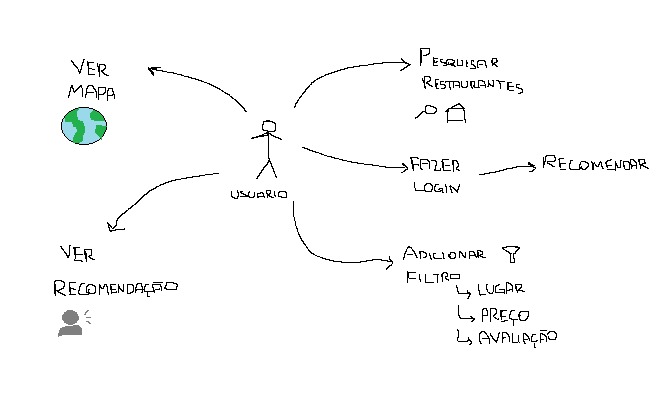 VER
MAPA
PESQUISAR
RESTAURANTES
USUARIO
FAZER
LOGIN
RECOMENDAR
VER
RECOMENDAÇÃO
ADICIONAR
FILTRO
LUGAR
PREÇO
AVALIAÇÃO